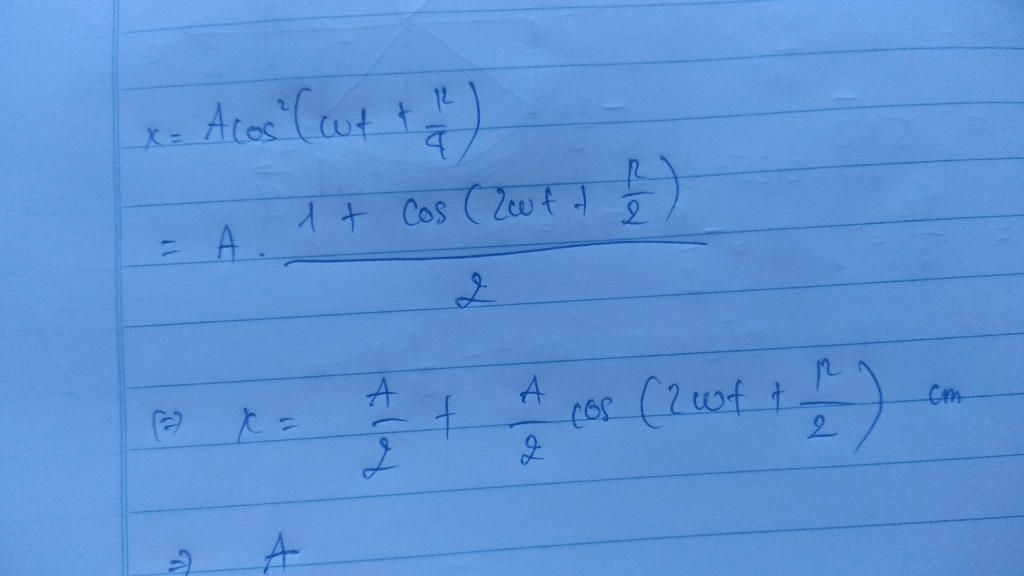 x = Acos²(ωt + π/4)
= A . (1 + cos(2ωt + π/2))/2
(=) x = A/2 + A/2 cos(2ωt + π/2) cm
=) A